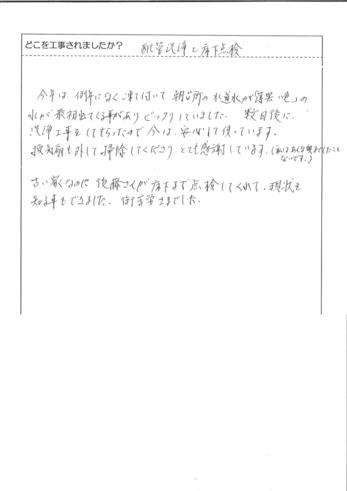 どこを工事されましたか？ 配管洗浄と床下点検
今年は、例年になく凍て付いて 朝台所の水道水が「薄茶い色」の
水が最初出てくる事があり ビックリしていました。 数日後に
洗浄工事をしてもらったので 今は、安心して使っています。
換気扇も外して掃除してくださり とても感謝しています。(私はあんな奥までしたこと
ないです。)
古い家なのに 後藤さんが床下まで点検してくれて、現状も
知る事もできました。 御苦労さまでした。